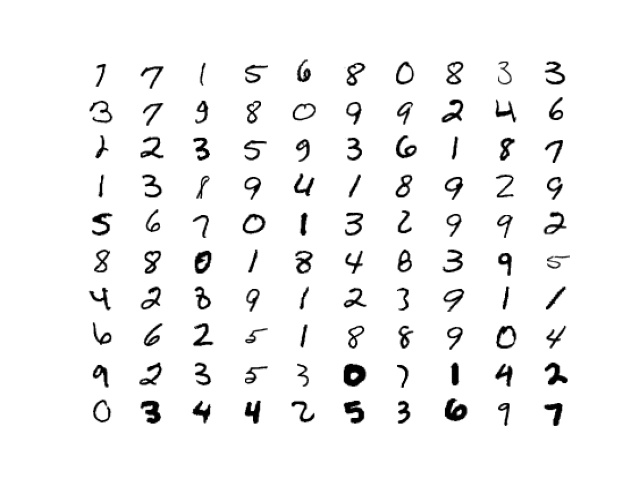 7 7 1 5 6 8 0 8 3 3
3 7 9 8 0 9 9 2 4 6
2 2 3 5 9 3 6 1 8 7
1 3 8 9 4 1 8 9 2 9
5 6 7 0 1 3 2 9 9 2
8 8 0 1 8 4 8 3 9 5
4 2 8 9 1 2 3 9 1 1
6 6 2 5 1 8 8 9 0 4
9 2 3 5 3 0 7 1 4 2
0 3 4 4 2 5 3 6 9 7